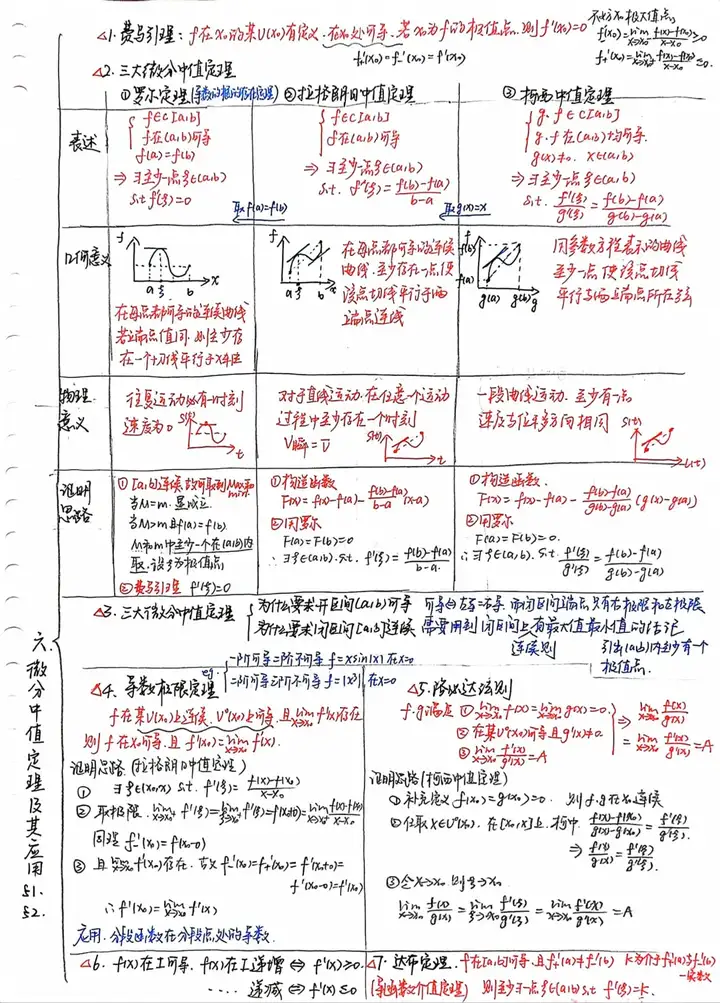 △1. 费马引理：f在x₀的某U(x₀)有定义，在x₀处可导，若x₀为f的极值点，则f'(x₀)=0
f₊'(x₀)=f₋'(x₀)=f'(x₀)
f₋'(x₀)=lim x→x₀⁻ f(x)-f(x₀)/x-x₀ ≥0
f₊'(x₀)=lim x→x₀⁺ f(x)-f(x₀)/x-x₀ ≤0.
△2. 三大微分中值定理
①罗尔定理(导数的根的存在定理) ②拉格朗日中值定理 ③柯西中值定理
表述
{ f∈C[a,b]
f在(a,b)可导
f(a)=f(b)
⇒ ∃至少一点ξ∈(a,b)
s.t f'(ξ)=0
取f(a)=f(b)
{ f∈C[a,b]
f在(a,b)可导
⇒ ∃至少一点ξ∈(a,b)
s.t. f'(ξ)=f(b)-f(a)/b-a
取g(x)=x
{ g.f∈C[a,b]
g.f在(a,b)均可导.
g'(x)≠0. x∈(a,b)
⇒ ∃至少一点ξ∈(a,b)
s.t. f'(ξ)/g'(ξ)=f(b)-f(a)/g(b)-g(a)
几何意义
f a ξ b x
在每点都可导的连续曲线
若端点值同，则至少存
在一个切线平行于x轴
f a ξ b x
在每点都可导的连续
曲线，至少存在一点，使
该点切线平行于两
端点连线
f f(b) f(a) g(a) g(b) g
用参数方程表示的曲线
至少一点，使该点切线
平行与两端点所在弦
物理意义
往复运动必有一时刻
速度为0 s(t) t
对于直线运动，在任意一个运动
过程中至少存在一个时刻
V瞬=V̄ s(t) t
一段曲线运动，至少有一点
速度与位移方向相同 s(t)
证明思路
①[a,b]连续 故可取到Max和min.
当M=m. 显成立
当M>m且f(a)=f(b)
M和m中至少一个在(a,b)内
取，设ξ为极值点
②费马引理 f'(ξ)=0
①构造函数
F(x)=f(x)-f(a)-f(b)-f(a)/b-a (x-a)
②用罗尔
F(a)=F(b)=0
∴∃ξ∈(a,b). s.t. f'(ξ)=f(b)-f(a)/b-a.
①构造函数.
F(x)=f(x)-f(a)-f(b)-f(a)/g(b)-g(a) (g(x)-g(a))
②用罗尔
F(a)=F(b)=0.
∴∃ξ∈(a,b). s.t. f'(ξ)/g'(ξ)=f(b)-f(a)/g(b)-g(a)
△3. 三大微分中值定理
{ 为什么要求开区间(a,b)可导 可导⇔左导=右导. 而闭区间端点，只有右极限和左极限
为什么要求闭区间[a,b]连续 需要用到闭区间上有最大值最小值的结论
连续则 引出(a,b)内至少有一个
极值点.
六、微分中值定理及其应用 §1. §2.
△4. 导数极限定理
eg. { 一阶可导二阶不可导 f=xsin|x| 在x=0
二阶可导三阶不可导 f=|x³| 在x=0
f在某U(x₀)上连续，U°(x₀)上可导，且lim x→x₀ f'(x)存在
则f在x₀可导，且f'(x₀)=lim x→x₀ f'(x).
证明思路(拉格朗日中值定理)
① ∃ξ∈(x₀,x) s.t. f'(ξ)=f(x)-f(x₀)/x-x₀
②取极限. lim x→x₀⁺ f'(ξ)=lim ξ→x₀⁺ f'(ξ)=f'(x₀+0)=lim x→x₀⁺ f(x)-f(x₀)/x-x₀
同理 f₋'(x₀)=f'(x₀-0)
③且lim x→x₀ f'(x)存在，故f₋'(x₀)=f₊'(x₀)=f'(x₀+0)=
f'(x₀-0)=f'(x₀)
∴f'(x₀)=lim x→x₀ f'(x)
应用. 分段函数在分段点处的导数.
△5. 洛必达法则
f.g满足 ①lim x→x₀ f(x)=lim x→x₀ g(x)=0.
②在某U°(x₀)可导且g'(x)≠0
③lim x→x₀ f'(x)/g'(x)=A
⇒ lim x→x₀ f(x)/g(x)
=lim x→x₀ f'(x)/g'(x)=A
证明思路(柯西中值定理)
①补充定义f(x₀)=g(x₀)=0. 则f.g在x₀连续
②任取x∈U°(x₀). 在[x₀,x]上. 柯中. f(x)-f(x₀)/g(x)-g(x₀)=f'(ξ)/g'(ξ).
⇒ f(x)/g(x)=f'(ξ)/g'(ξ).
③令x→x₀ 则ξ→x₀
lim x→x₀ f(x)/g(x)=lim ξ→x₀ f'(ξ)/g'(ξ)=lim x→x₀ f'(x)/g'(x)=A
△6. f(x)在I可导，f(x)在I递增 ⇔ f'(x)≥0.
…… 递减 ⇔ f'(x)≤0
△7. 达布定理. f在[a,b]可导，且f₊'(a)≠f₋'(b) k为介于f₊'(a)与f₋'(b)
一实数
(导函数介值定理) 则至少∃一点ξ∈(a,b) s.t f'(ξ)=k.